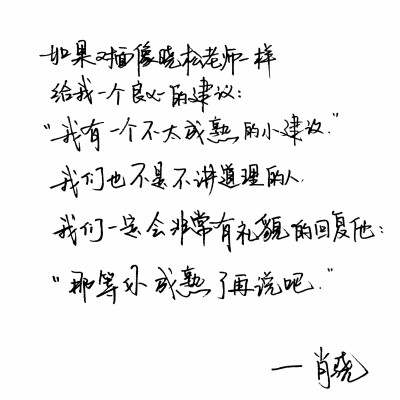 如果对面像晓松老师一样
给我一个良心的建议：
“我有一个不太成熟的小建议.”
我们也不是不讲道理的人.
我们一定会非常有礼貌的回复他：
“那等你成熟了再说吧.”
— 肖尧